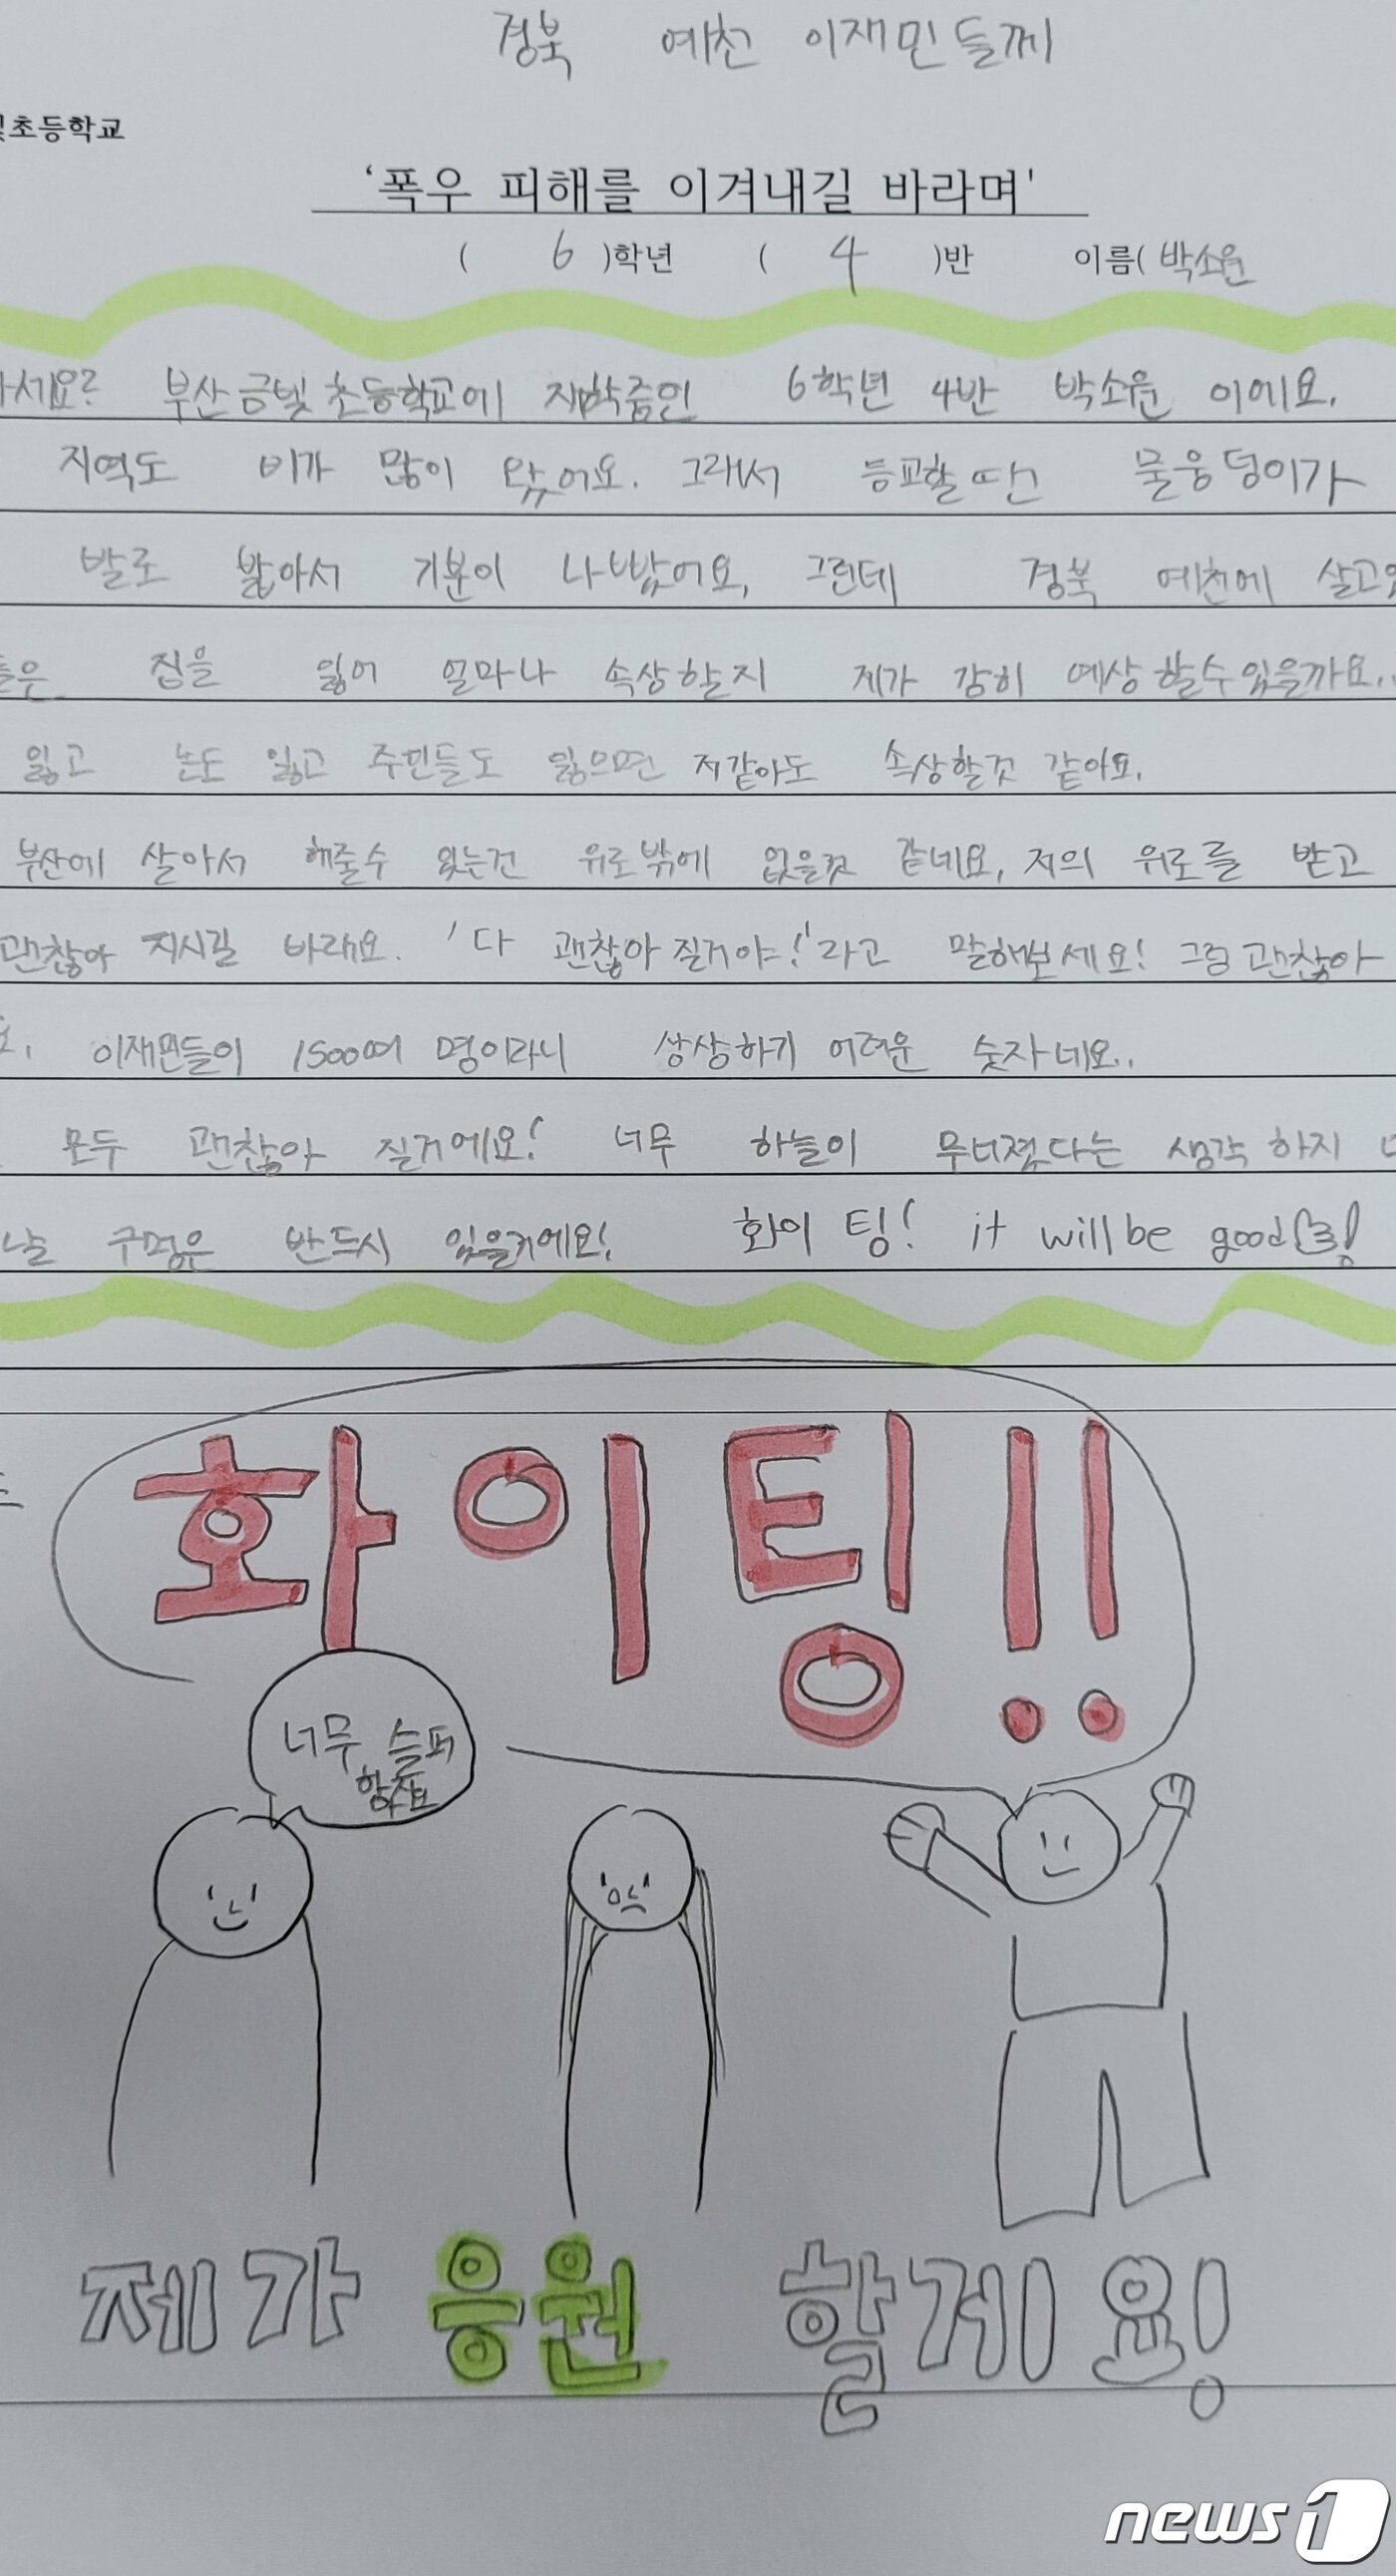 경북 예천 이재민들께
초등학교
'폭우 피해를 이겨내길 바라며'
( 6 )학년 ( 4 )반 이름( 박소윤
세요? 부산금빛초등학교에 재학중인 6학년 4반 박소윤 이에요.
지역도 비가 많이 왔어요. 그래서 등교할땐 물웅덩이가
발로 밟아서 기분이 나빴어요, 그런데 경북 예천에 살고
들은 집을 잃어 얼마나 속상할지 제가 감히 예상할수있을까요..
잃고 논도 잃고 주민들도 잃으면 저같아도 속상할것 같아요.
부산에 살아서 해줄수 있는건 위로밖에 없을것 같네요, 저의 위로를 받고
괜찮아 지시길 바래요. '다 괜찮아 질거야!'라고 말해보세요! 그럼 괜찮아
요, 이재민들이 1500여 명이라니 상상하기 어려운 숫자네요..
모두 괜찮아 질거에요! 너무 하늘이 무너졌다는 생각 하지
날 구멍은 반드시 있을거에요! 화이팅! it will be good!
화이팅!!
너무 슬퍼
제가 응원 할게요!
news1